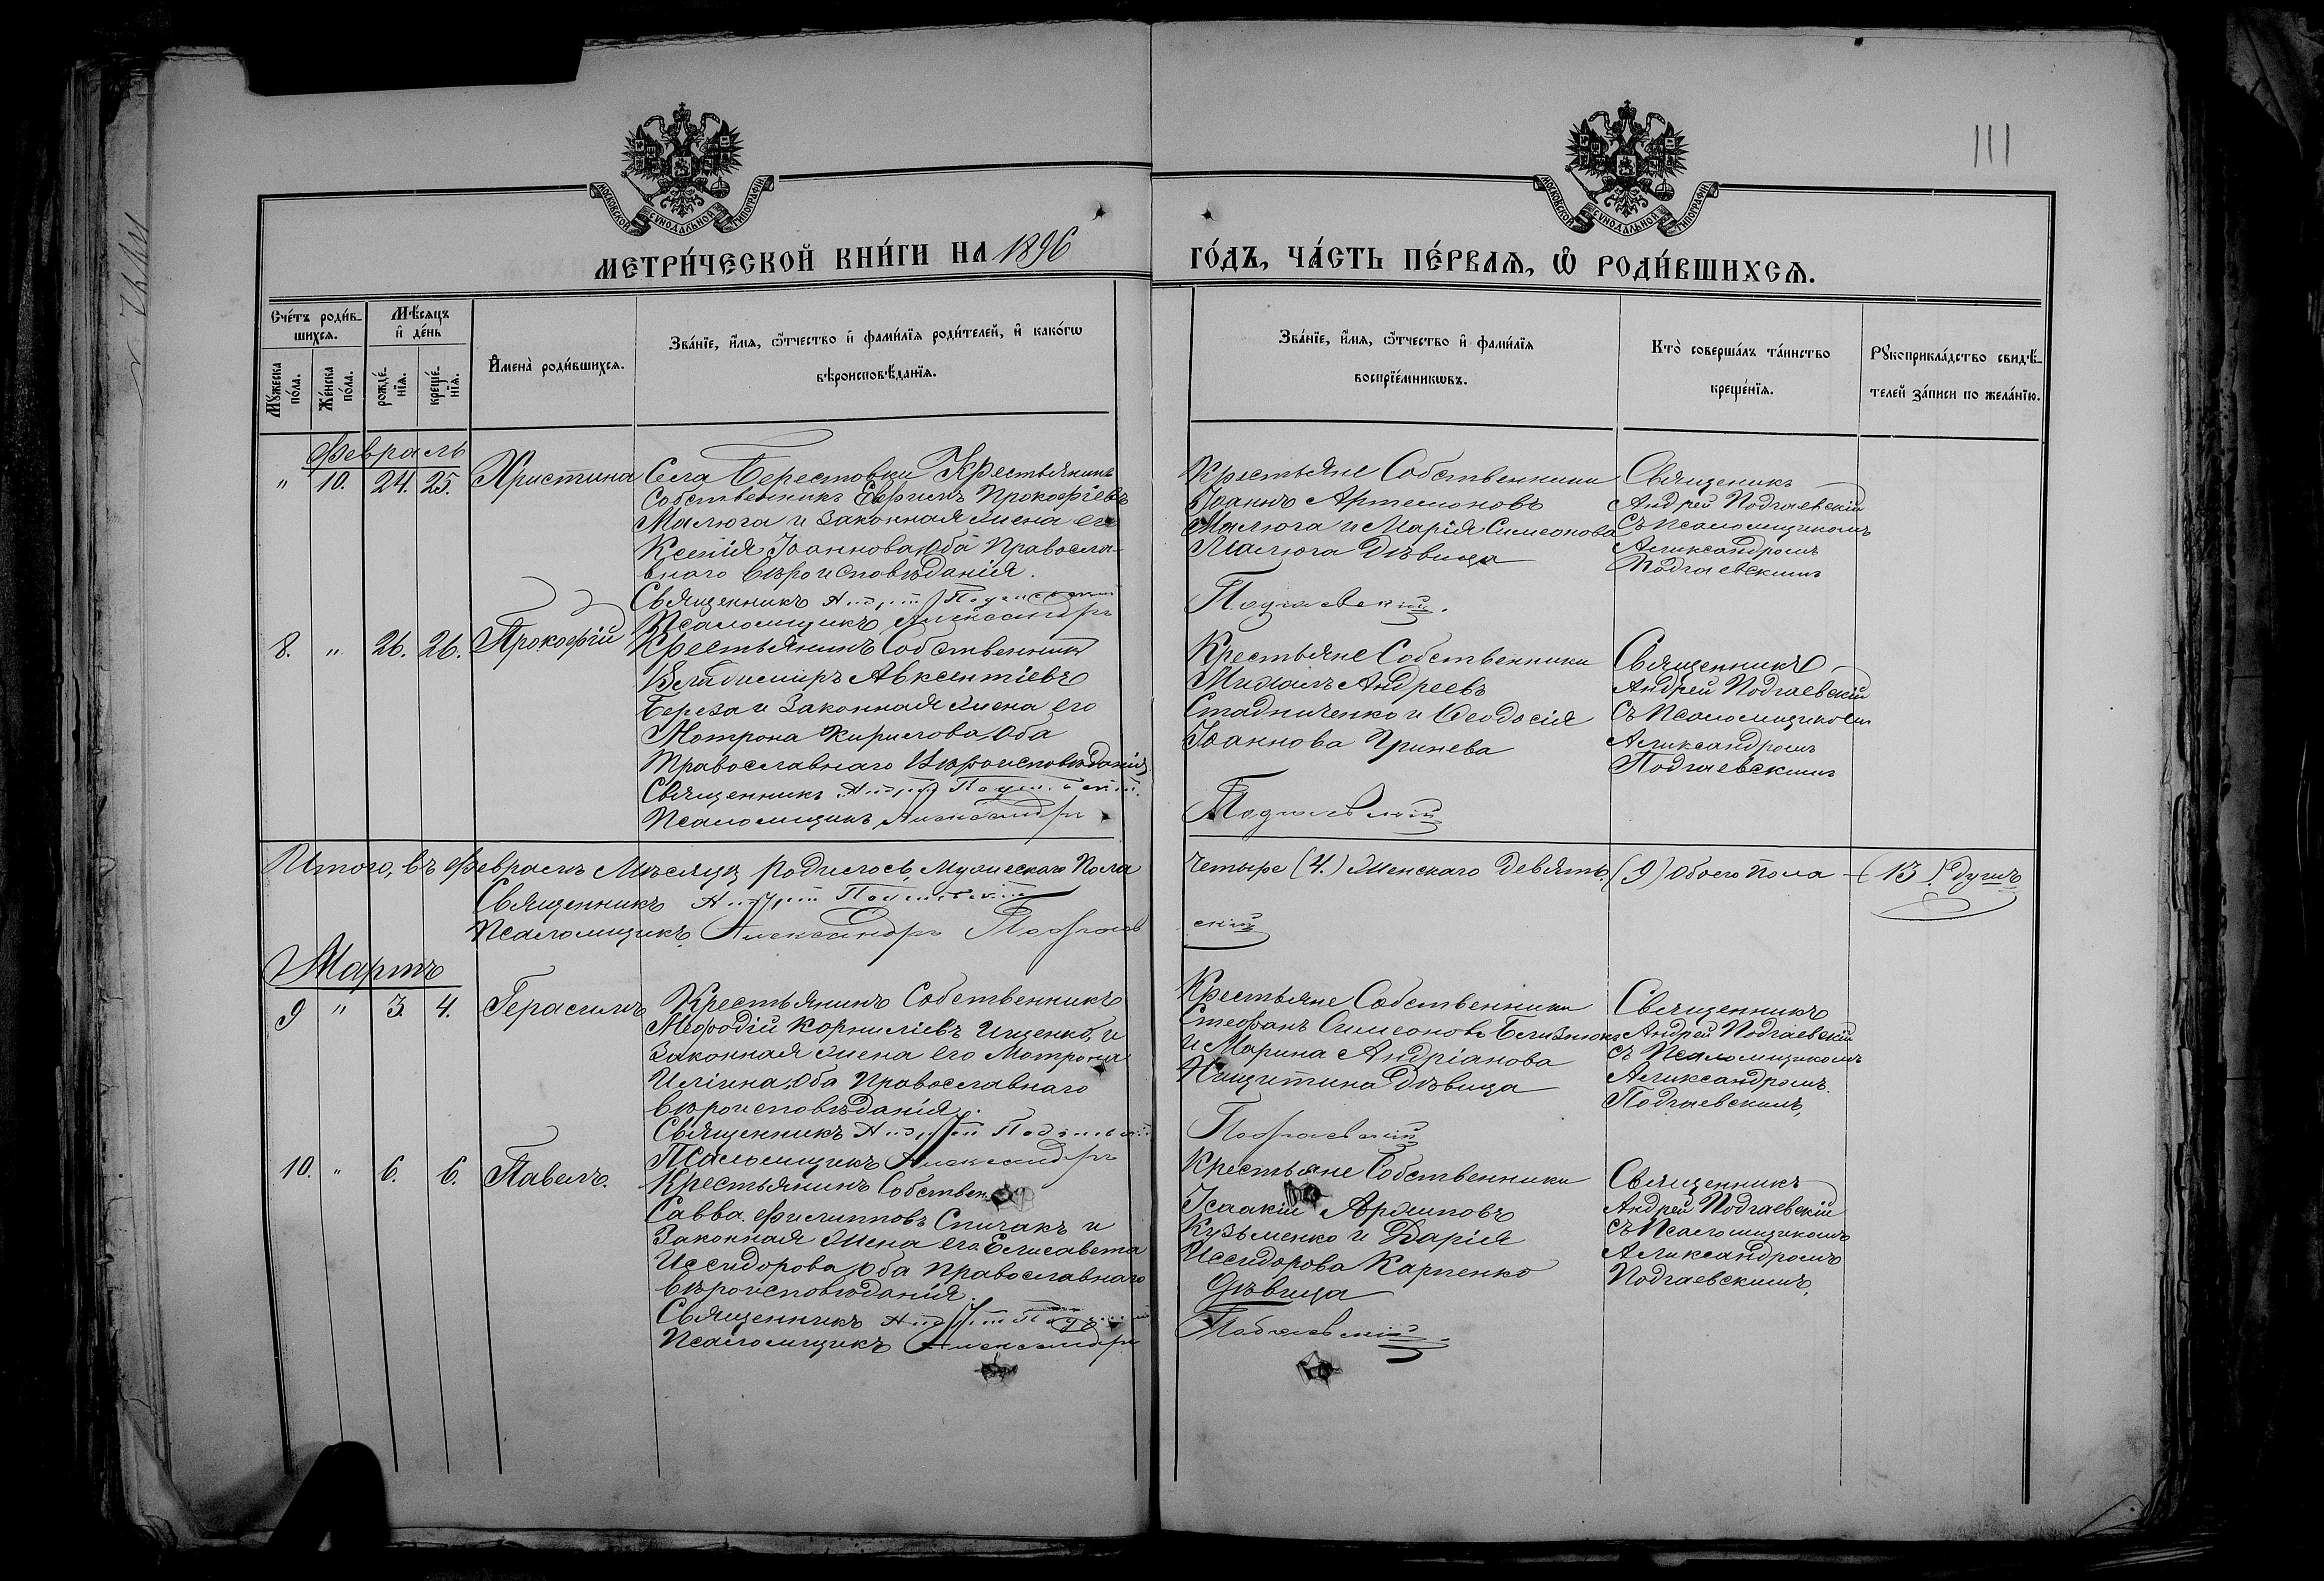 111
МОСКОВСКОЙ СУНОДАЛЬНОЙ ТИПОГРАФІИ
МОСКОВСКОЙ СУНОДАЛЬНОЙ ТИПОГРАФІИ
МЕТРИ́ЧЕСКОЙ КНИ́ГИ НА 1896
ГО́ДЪ, ЧА́СТЬ ПЕ́РВАѦ, Ѡ РОДИ́ВШИХСѦ.
Сче́тъ роди́в-
шихсѧ.
Мꙋжеска
по́ла.
Же́нска
по́ла.
Мѣ́сѧцъ
и҆ де́нь
рожде́-
нїѧ.
креще́-
нїѧ.
И҆мена̀ роди́вшихсѧ.
Зва́нїе, и҆́мѧ, ѻ҆́тчество и҆ фами́лїѧ роди́телей, и҆ како́гѡ
вѣроисповѣ́данїѧ.
Зва́нїе, и҆́мѧ, ѻ҆́тчество и҆ фами́лїѧ
воспрїе́мникѡвъ.
Кто̀ соверша́лъ та́инство
креще́нїѧ.
Рꙋкоприкла́дство свидѣ́-
телей за́писи по жела́нїю.
Февраль
" 10. 24. 25. Христина
Села Берестовки Крестьянинъ
Собственникъ Евфимъ Прокофіевъ
Малюга и Законная Жена его
Ксенія Іоаннова, Оба Правосла-
внаго Вѣроисповѣданія.
Священникъ Андрей Подгаевскій
Псаломщикъ Александръ
Крестьяне Собственники
Іоаннъ Артемоновъ
Малюга и Марія Симеонова
Малюга Дѣвица
Подгаевскій.
Священникъ
Андрей Подгаевскій
Съ Псаломщикомъ
Александромъ
Подгаевскимъ
8. " 26. 26. Прокофій
Крестьянинъ Собственникъ
Владимиръ Авксентіевъ
Береза и Законная Жена его
Мотрона Кирилова, Оба
Православнаго Вѣроисповѣданія.
Священникъ Андрей Подгаевскій.
Псаломщикъ Александръ
Крестьяне Собственники
Михаилъ Андреевъ
Стадниченко и Феодосія
Іоаннова Гринева
Подгаевскій
Священникъ
Андрей Подгаевскій
Съ Псаломщикомъ
Александромъ
Подгаевскимъ
Итого, въ Февралѣ Мѣсяцѣ родилось, Мужескаго Пола
Четыре (4.) Женскаго Девять (9) Обоего Пола — (13.) душъ
Священникъ Андрей Подгаевскій
Псаломщикъ Александръ Подгаев
скій
Мартъ
9 " 3. 4. Герасимъ
Крестьянинъ Собственникъ
Меѳодій Корниліевъ Ищенко, и
Законная Жена его Мотрона
Иліина, Оба Православнаго
Вѣроисповѣданія.
Священникъ Андрей Подгаевскій
Псаломщикъ Александръ
Крестьяне Собственники
Стефанъ Симеоновъ Близнюкъ
и Марина Андріанова
Дѣвица
Подгаевскій
Священникъ
Андрей Подгаевскій
съ Псаломщикомъ
Александромъ
Подгаевскимъ,
10. " 6. 6. Павелъ.
Крестьянинъ Собствен
Савва Филипповъ Спичакъ и
Законная Жена его Елисавета
Иссидорова, Оба Православнаго
Вѣроисповѣданія.
Священникъ Андрей
Псаломщикъ Александръ
Крестьяне Собственники
Исаакій
Кузьменко и Дарія
Иссидорова Карпенко
Дѣвица
Подгаевскій
Священникъ
Андрей Подгаевскій
Съ Псаломщикомъ
Александромъ
Подгаевскимъ,